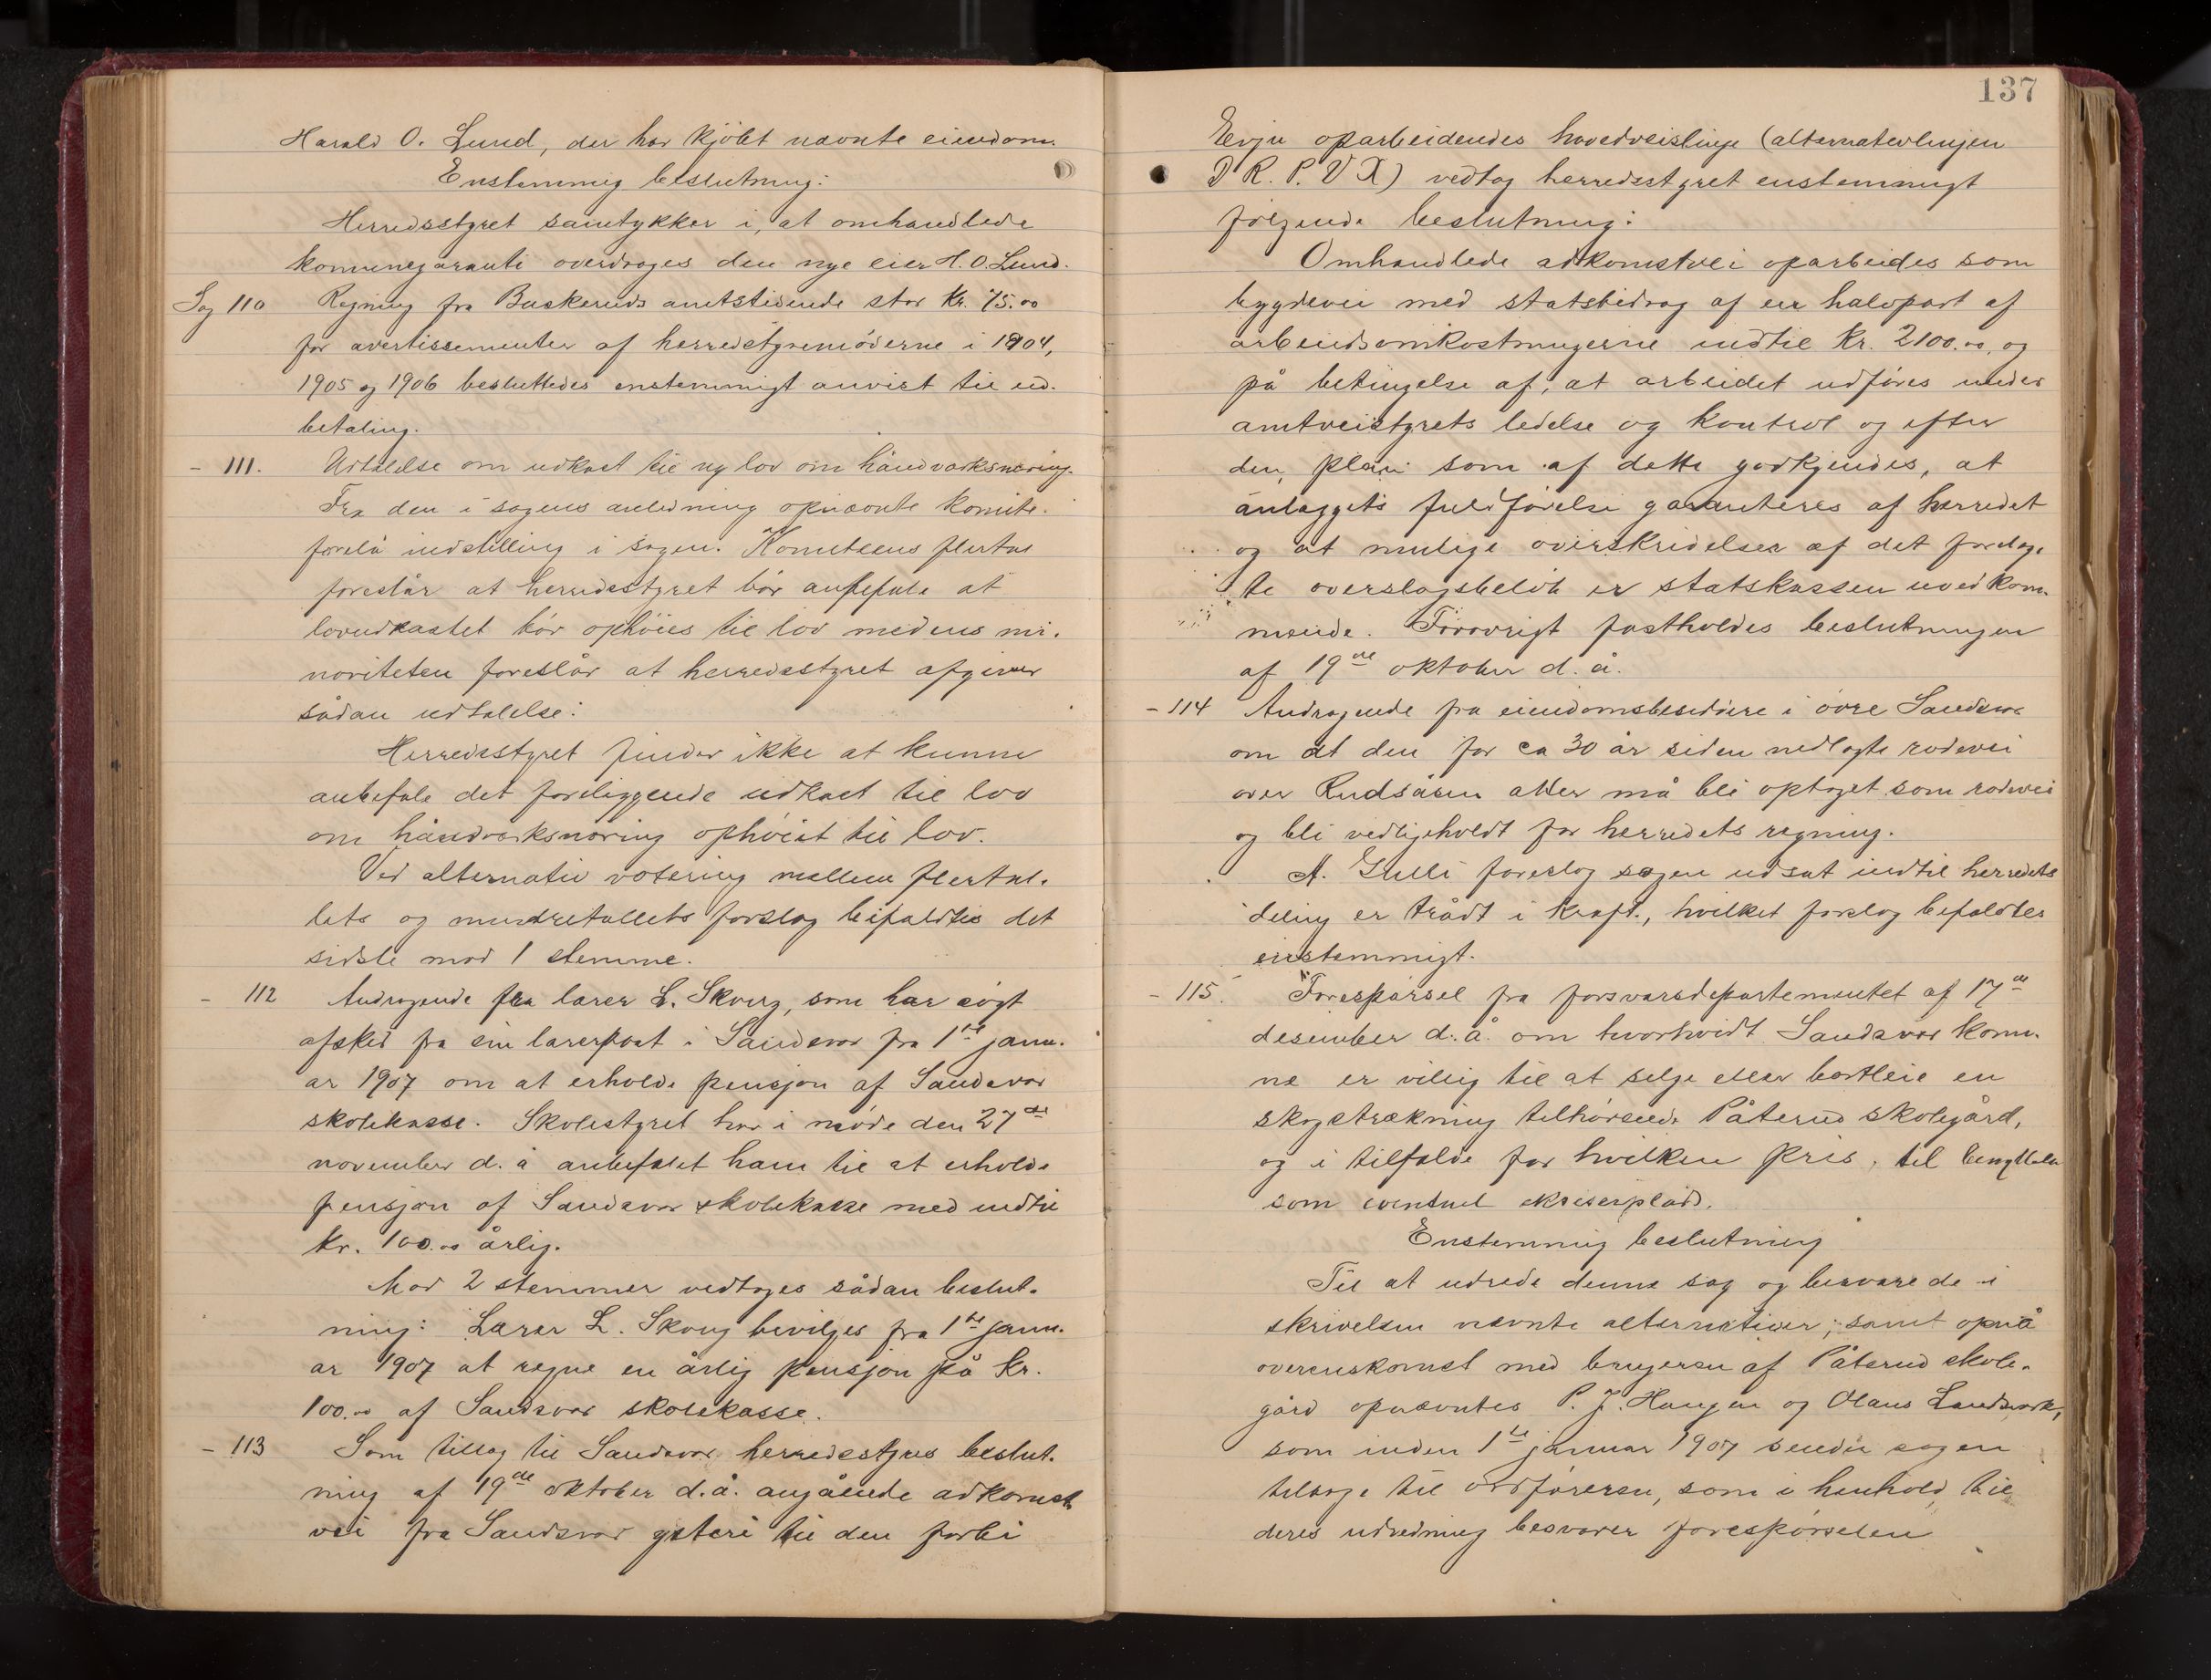 Harald O. Lund, der har kjöbt nævnte eiendom.
Enstemmig beslutning:
Herredsstyret samtykker i, at omhandlede
kommunegaranti overdrages den nye eier H. O. Lund.
Sag 110 Regning fra Buskeruds amtstidende stor Kr. 75.00
for avertissementer af herredstyremöderne i 1904,
1905 og 1906 besluttedes enstemmigt anvist til ud-
betaling.
- 111. Udtalelse om udkast til ny lov om håndværksnæring.
Fra den i sagens anledning opnævnte komite
forelå indstilling i sagen. Komiteens flertal
foreslår at herredsstyret bör anbefale at
lovudkastet bör ophöies til lov medens mi-
noriteten foreslår at herredsstyret afgiver
sådan udtalelse:
Herredsstyret finder ikke at kunne
anbefale det foreliggende udkast til lov
om håndværksnæring ophöiet til lov.
Ved alternativ votering mellem flertal-
lets og mindretallets forslag bifaldtes det
sidste mod 1 stemme.
- 112 Andragende fra lærer L. Skoug, som har sögt
afsked fra sin lærerpost i Sandsvær fra 1ste janu-
ar 1907 om at erholde pensjon af Sandsvær
skolekasse. Skolestyret har i möde den 27de
november d. å anbefalet ham til at erholde
pensjon af Sandsvær skolekasse med indtil
kr. 100.00 årlig.
Mod 2 stemmer vedtoges sådan beslut-
ning: Lærer L. Skoug bevilges fra 1ste janu-
ar 1907 at regne en årlig pensjon på kr.
100.00 af Sandsvær skolekasse.
- 113 Som tillæg til Sandsvær herredsstyres beslut-
ning af 19de oktober d. å. angående adkomst
vei fra Sandsvær ysteri til den forbi
137
Evju oparbeidendes hovedveislinje (alternativlinjen
D R. P. V X) vedtog herredsstyret enstemmigt
fölgende beslutning:
Omhandlede adkomstvei oparbeides som
bygdevei med statsbidrag af en halvpart af
arbeidsomkostningerne indtil Kr. 2100.00, og
på betingelse af, at arbeidet udföres under
amtveistyrets ledelse og kontrol og efter
den plan som af dette godkjendes, at
anlæggets fuldförelse garanteres af herredet
og at mulige overskridelser af det forelag-
te overslagsbelöb er statskassen uvedkom-
mende. Forövrigt fastholdes beslutningen
af 19de oktober d. å.
- 114 Andragende fra eiendomsbesiddere i övre Sandsvær
om at den for ca 30 år siden nedlagte rodevei
over Rudsåsen atter må bli optaget som rodevei
og bli vedligeholdt for herredets regning.
A. Gulli foreslog sagen udsat indtil herredets
deling er trådt i kraft., hvilket forslag bifaldtes
enstemmigt.
- 115. Forespörsel fra forsvarsdepartementet af 17de
desember d. å. om hvorhvidt Sandsvær kommu-
ne er villig til at selge eller bortleie en
skogstrækning tilhörende Påterud skolegård,
og i tilfælde for hvilken pris, til benyttelse
som eventuel ekserserplads.
Enstemmig beslutning
Til at udrede denne sag og besvare de i
skrivelsen nævnte alternativer; samt opnå
overenskomst med brugeren af Påterud skole-
gård opnævntes P. J. Haugen og Olaus Landsverk,
som inden 1ste januar 1907 sender sagen
tilbage til ordföreren, som i henhold til
deres udredning besvarer forespörselen